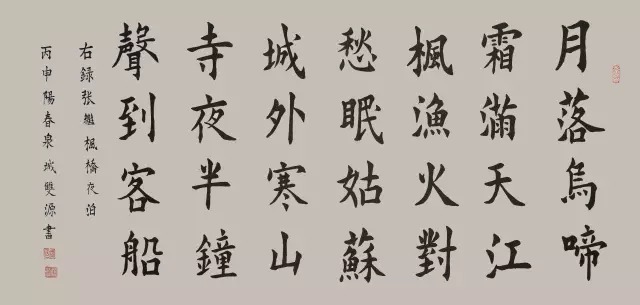 月落烏啼
霜滿天江
楓漁火對
愁眠姑蘇
城外寒山
寺夜半鐘
聲到客船
右録张繼楓橋夜泊
丙申陽春泉城雙源書